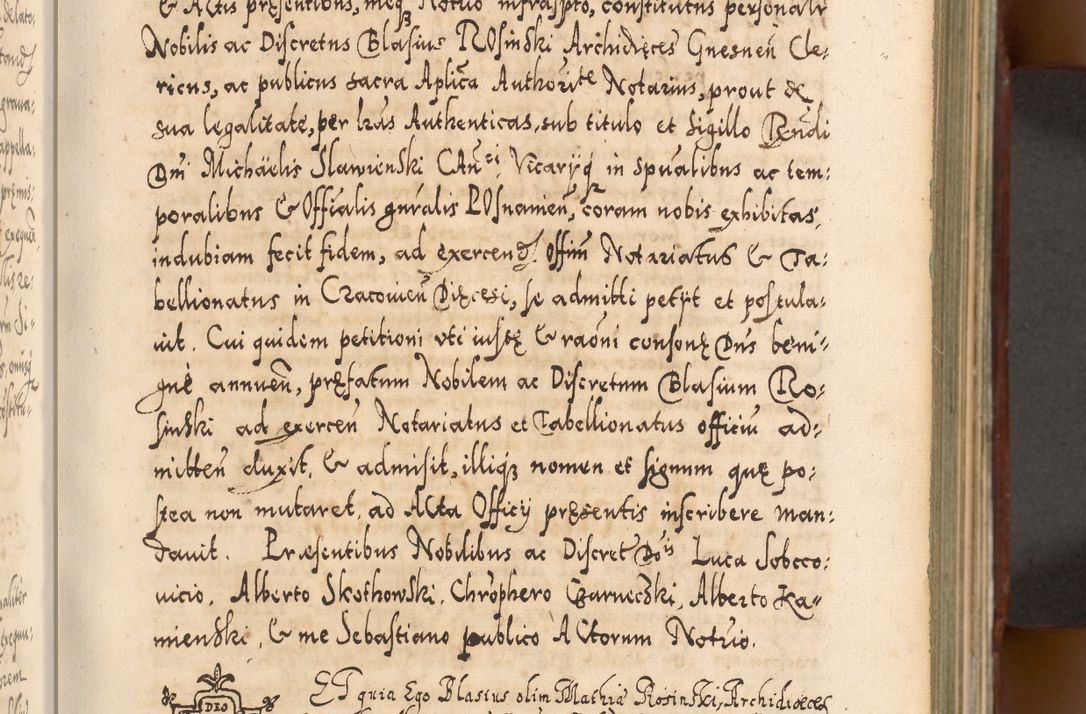 & Actis presentibus, meq3 Notrio infrascpto, constitutus personalr
Nobilis ac Discretus Blasius ROsinski Archidięces Gnesneñ Cle:
ricus, ac publicus sacra Aplica Authorite Notarius, prout de
sua legalitate, per lras Authenticas, sub titulo et sigillo Rendi
Dni Michaëlis Slawienski CAnci, Vicaryq in spualibus ac tem:
poralibus & Offialis gnralis POsnanieñ, coram nobis exhibitas,
indubiam fecit fidem, ad exercend Offim Notariatus & Ta:
bellionatus in Cracovień Dięcesi, se admitti petÿt et postula:
uit. Cui quidem petitioni uti iustę & raoni consonę Dns beni:
gnè annueñ, pręfatum Nobilem ac Discretum Blasium Ro:
sinski ad exerceñ Notariatus et Tabellionatus officiũ ad:
mitteñ duxit, & admisit, illiq3 nomen et signum quę po:
stea non mutaret, ad Acta Officÿ pręsentis inscribere man:
dauit. Præsentibus Nobilibus ac Discret Dois Luca Sobcco:
uicio, Alberto Skothowski, Chrophero Czarnecski, Alberto Ka:
mienski, & me Sebastiano publico ACtorum Notrio.
DEO
ET quia Ego Blasius olim Mathię Rosinski, Archidiæces